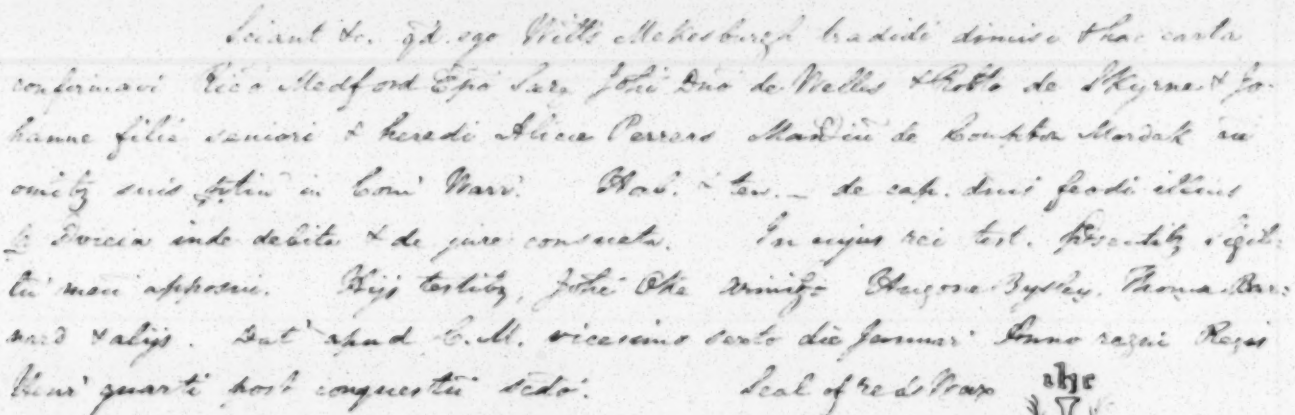 Sciant &c. qd. ego Wills Mekesburgh tradidi dimisi & hac carta
confirmavi Rico Medford Epo Sarz Johi Dno de Welles & Robto de Skyrne & Jo-
hanne filie seniori & heredi Alicie Perrers Maniu de Compton Mordak cu
omibz suis ptin in Com Warr. Hab. & ten. _ de cap. dnis feodi illius
p Svicia inde debita & de jure consueta. In cujus rei test. psentibz sigil-
lu meu apposui. Hijs testibz, Johe Oke Hugone Bysley. Thoma Bar-
nard & alijs. Dat apud C. M. vicesimo sexto die Januar Anno regni Regis
Henr quarti post conquestu scdo. Seal of red Wax ihc